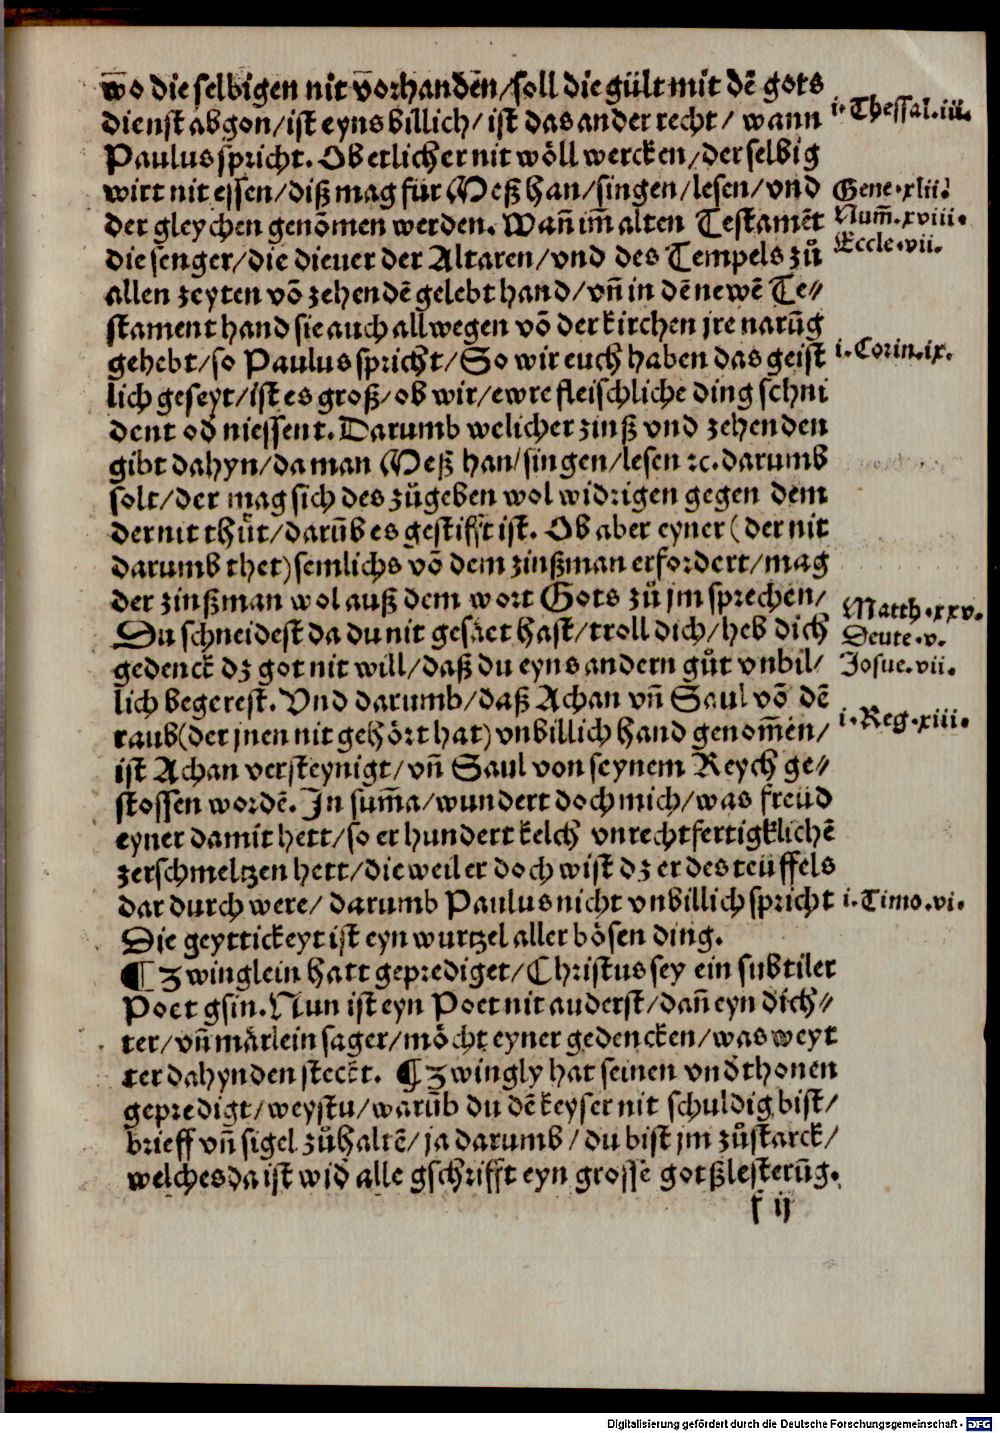 wo die selbigen nit vorhandẽn/soll die gült mit dẽ gots
dienst abgon/ist eyns billich/ist das ander recht/ wann
i. Thessal. iii.
Paulus spricht. Ob etlicher nit wöll wercken/der selbig
wirt nit essen/diß mag für Meß han/singen/lesen/vnd
Gene. xlii.
der gleychen genõmen werden. Wañ im̃ alten Testamẽt
Num̃. xviii.
die senger/die diener der Altaren/vnd des Tempels zů
Eccle. vii.
allen zeyten võ zehendẽ gelebt hand/vñ in dẽ newẽ Te⸗
stament hand sie auch allwegen võ der kirchen jre narũg
gehebt/so Paulus spricht/So wir euch haben das geist
i. Corin. ix.
lich geseyt/ist es groß/ob wir/ewre fleischliche ding schni
dent od niessent. Darumb welicher zinß vnd zehenden
gibt dahyn/da man Meß han/singen/lesen ꝛc. darumb
solt/der mag sich des zůgeben wol widrigen gegen dem
der nit thůt/darũb es gestifft ist. Ob aber eyner (der nit
darumb thet) semlichs võ dem zinßman erfordert/mag
der zinßman wol auß dem wort Gots zů jm sprechen/
Du schneidest da du nit gesäet hast/troll dich/heb dich
Matth. xxv.
Deute. v.
gedenck dz got nit will/daß du eyns andern gůt vnbil/
Josue. vii.
lich begerest. Vnd darumb/daß Achan vñ Saul võ dẽ
raub(der jnen nit gehört hat) vnbillich hand genom̃en/
i. Reg. xiii.
ist Achan versteynigt/vñ Saul von seynem Reych ge⸗
stossen wordẽ. In sum̃a/wundert doch mich/was freüd
eyner damit hett/so er hundert kelch vnrechtfertigklichẽ
zerschmeltzen hett/die weil er doch wist dz er des teüffels
dar durch were/ darumb Paulus nicht vnbillich spricht
i. Timo. vi.
Die geyttickeyt ist eyn wurtzel aller bösen ding.
¶ Zwinglein hatt geprediget/Christus sey ein subtiler
Poet gsin. Nun ist eyn Poet nit anderst/dañ eyn dich⸗
ter/vñ märlein sager/möcht eyner gedencken/was weyt
ter dahynden steckt. ¶ Zwingly hat seinen vndthonen
gepredigt/weystu/warũb du dẽ keyser nit schuldig bist/
brieff vñ sigel zůhaltẽ/ja darumb/du bist jm zůstarck/
welches da ist wid alle gschrifft eyn grosse gotßlesterũg.
f ij
Digitalisierung gefördert durch die Deutsche Forschungsgemeinschaft - DFG